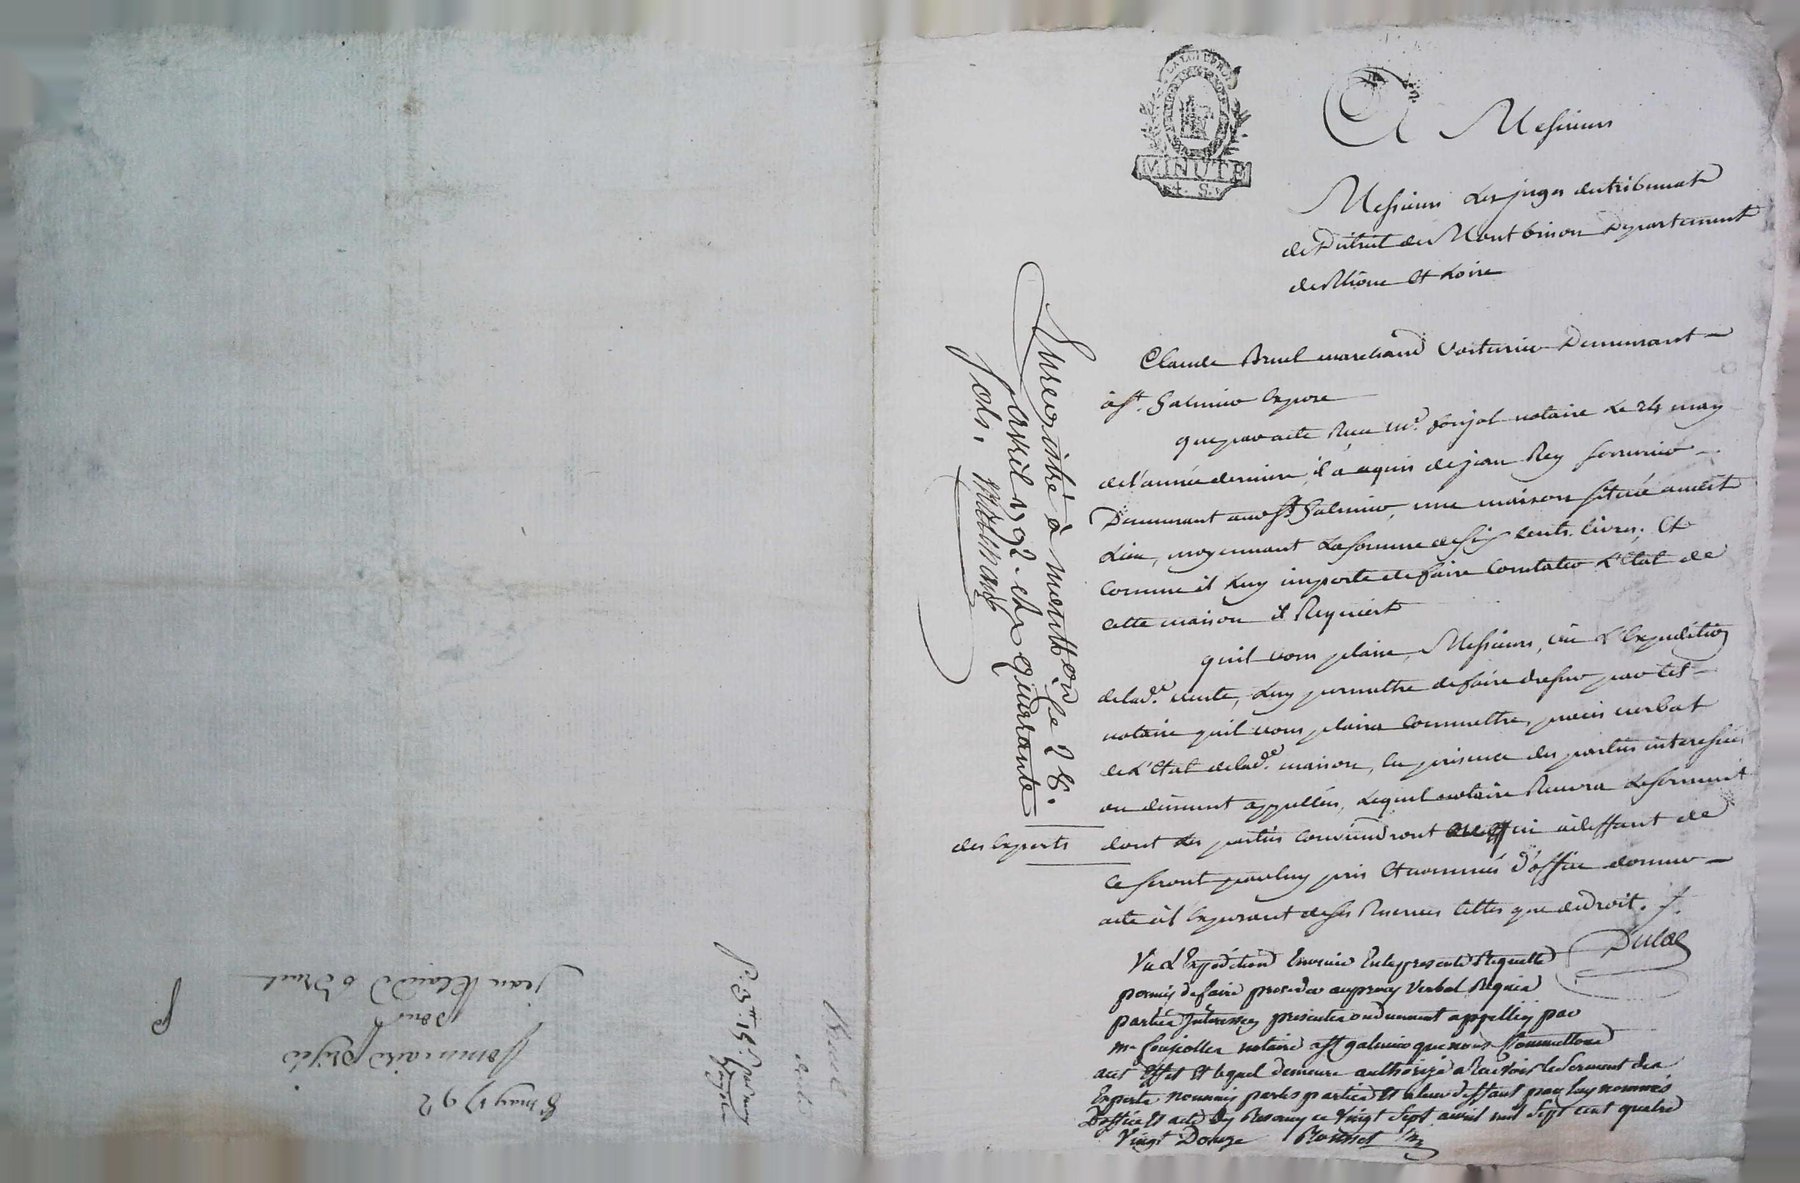 LA LOI ET LE ROI
MINUTE
4. S.
A Messieurs
Messieurs Les juges du tribunal
de District de Montbrison Departement
de Rhône Et Loire
Claude Bruel marchand Voiturier Demeurant
à St. Galmier Expose
que par acte Recu me. foujol notaire Le 24 may
de l'année derniere, il a aquis de jean Rey ferrurier
Demeurant aud St. Galmier, une maison située audit
Lieu, moyennant La somme de six cents livres; Et
comme il Luy importe de faire Constater L'Etat de
cette maison il Requiert
quil vous plaise, Messieurs, vû L'Expedition
de lad.e vente, Luy permettre de faire dresser par tel
notaire quil vous plaira commettre, procès verbal
de L'Etat de lad.e maison, En presence des parties interessées
ou dûment appellées, Lequel notaire Recevra Le serment
des Experts dont les parties conviendront ou qui à deffaut de
ce seront par luy pris Et nommés d'office donner
acte à l'Exposant de ses Reserves telles que de droit. /.
Dulac
Vu L'Expedition Enoncée En la presente Requette
permis de faire proceder au procès Verbal Requis
parties Interessées presentes ou duement appellées par
me foujolles notaire a St galmier que nous Commettons
a cet Effet Et lequel demeure authorizé a Recevoir le Serment des
Experts nommés par les parties Et a leur deffaut par luy nommés
D'office Et acte des Reserves ce Vingt Sept avril mil Sept cent quatre
Vingt Douze Ronnet
Enregistré à montbrison Le 28.
avril 1792. et R. quarante
sols.
8 may 1792
pour
jean Claude Bruel
Bruel